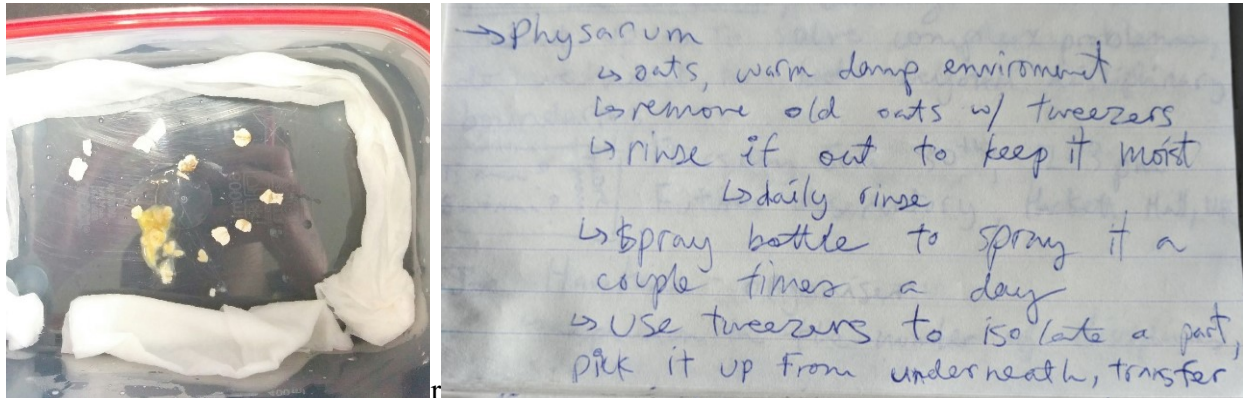 r
→ Physarum
↳ oats, warm damp enviroment
↳ remove old oats w/ tweezers
↳ rinse it out to keep it moist
↳ daily rinse
↳ spray bottle to spray it a
couple times a day
↳ Use tweezers to isolate a part,
pick it up from underneath, trnsfer